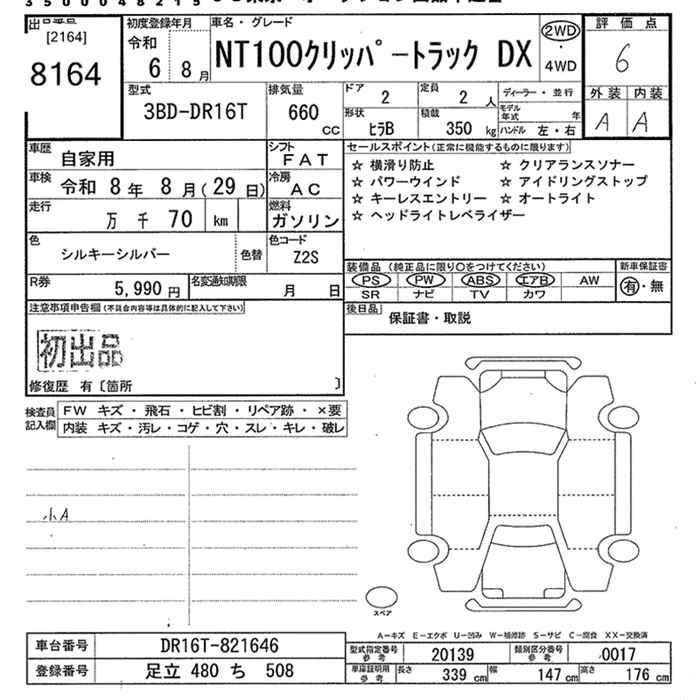 3500048215
出品番号
[2164]
8164
初度登録年月
令和
6 8月
車名・グレード
NT100クリッパートラック DX
2WD
・
4WD
評価点
6
外装 内装
A A
型式
3BD-DR16T
排気量
660
cc
ドア
2
定員
2 人
形状
ヒラB
積載
350 kg
ディーラー・並行
モデル年式 年
ハンドル 左・右
車歴
自家用
シフト
FAT
車検
令和 8年 8月(29日)
冷房
AC
走行
万 千 70 km
燃料
ガソリン
色
シルキーシルバー
色替
色コード
Z2S
R券
5,990円
名変通知期限
月 日
セールスポイント(正常に機能するものに限ります)
☆ 横滑り防止 ☆ クリアランスソナー
☆ パワーウインド ☆ アイドリングストップ
☆ キーレスエントリー ☆ オートライト
☆ ヘッドライトレベライザー
装備品(純正品に限り○をつけてください)
PS PW ABS エアB AW
SR ナビ TV カワ
新車保証書
有・無
後日品
保証書・取説
注意事項申告欄(不具合内容等は具体的に記入して下さい)
初出品
修復歴 有〔箇所 〕
検査員記入欄
FW キズ・飛石・ヒビ割・リペア跡・×要
内装 キズ・汚レ・コゲ・穴・スレ・キレ・破レ
小A
スペア
A-キズ E-エクボ U-凹み W-補修跡 S-サビ C-腐食 XX-交換済
車台番号
DR16T-821646
登録番号
足立 480 ち 508
型式指定番号
参考
20139
類別区分番号
参考
0017
車庫証明用
参考
長さ
339 cm
幅
147 cm
高さ
176 cm